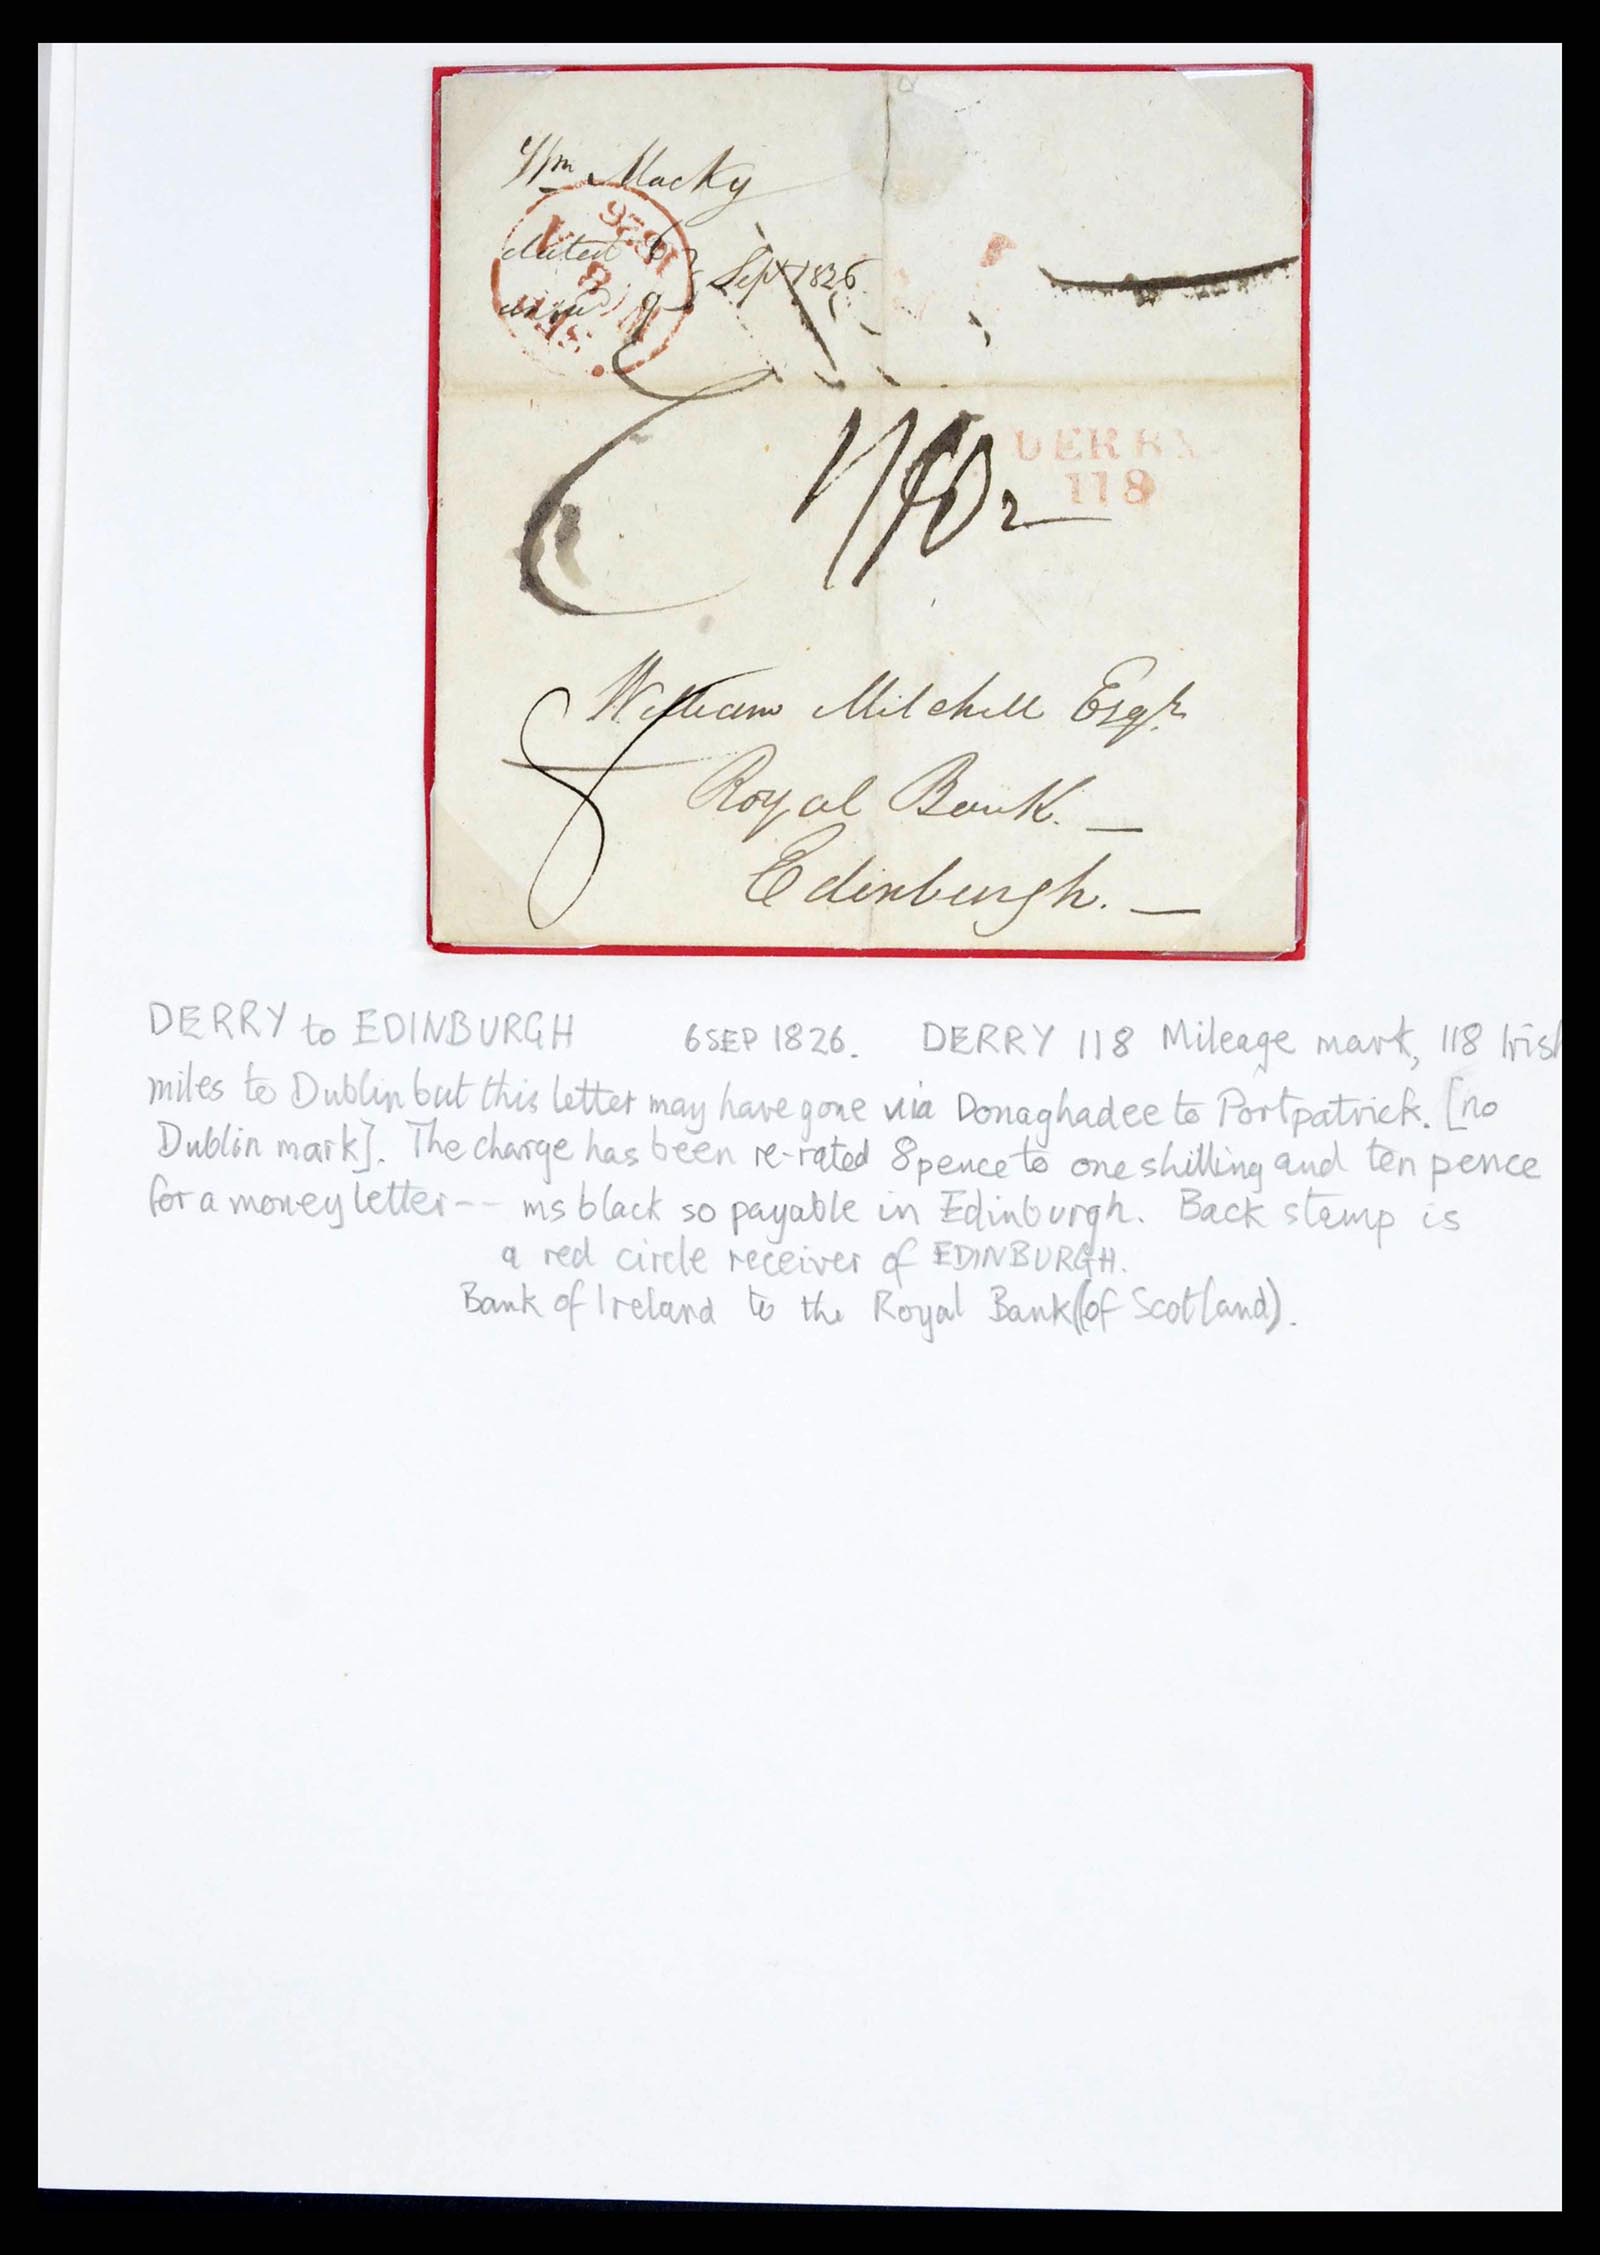 Wm Macky
dated 6
Sept 1826
9
1826
8
DERRY
118
8
William Mitchell Esqr.
Royal Bank. —
Edinburgh. —
DERRY to EDINBURGH 6 SEP 1826. DERRY 118 Mileage mark, 118 Irish
miles to Dublin but this letter may have gone via Donaghadee to Portpatrick. [no
Dublin mark]. The charge has been re-rated 8 pence to one shilling and ten pence
for a money letter -- ms black so payable in Edinburgh. Back stamp is
a red circle receiver of EDINBURGH.
Bank of Ireland to the Royal Bank (of Scotland).